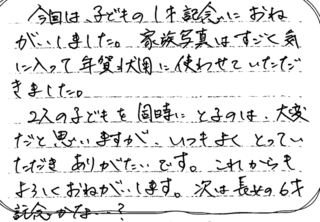 今回は、子どもの1才記念におね
がいしました。家族写真はすごく気
に入って年賀状用に使わせていただ
きました。
2人の子どもを同時にとるのは、大変
だと思いますが、いつもよくとってい
ただきありがたいです。これからも
よろしくおねがいします。次は長女の6才
記念かな…?